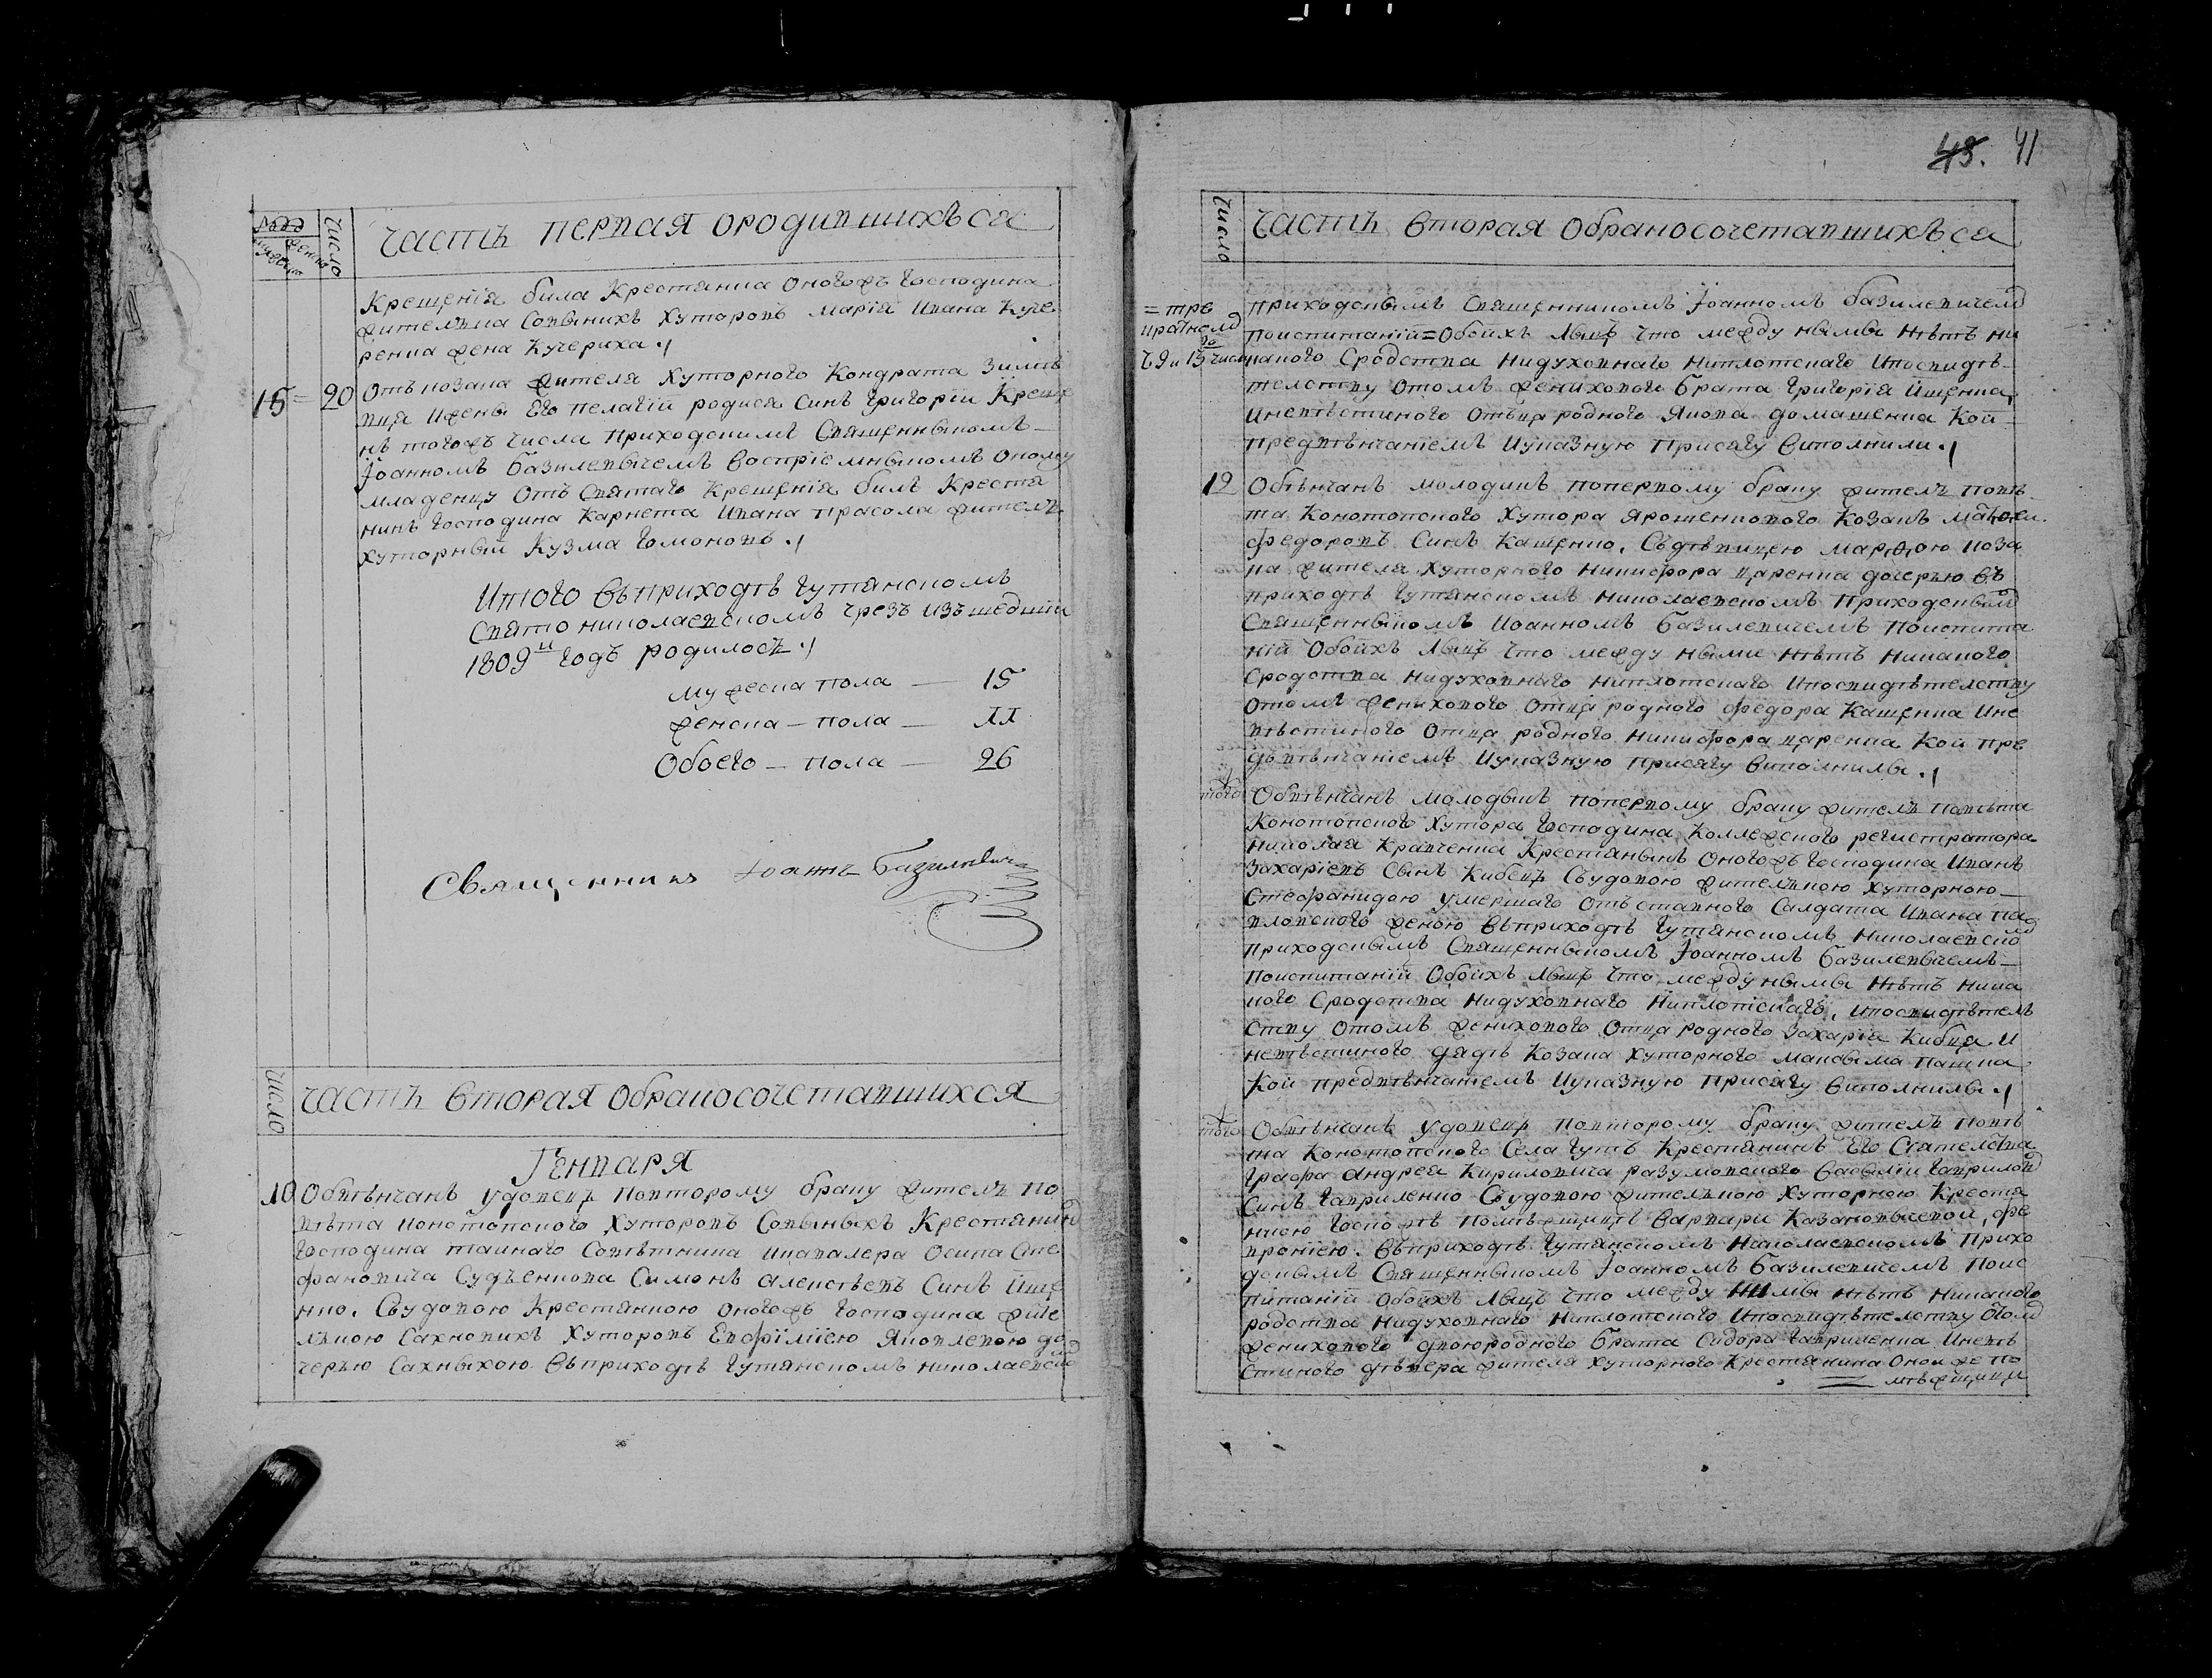 Рода
мужеска
женска
Число
Часть первая ородившихъся
Крещенія била Крестянка Оногожъ Господина
жителька Совыкихъ Хуторовъ Марія Ивана Куче
ренка жена Кучериха ./
15 = 20
Отъ козака жителя Хуторного Кондрата
и жены Его Пелагіи родися Синъ Григорій Креще
нъ тогожъ Числа Приходскимъ Священныкомъ
Іоанномъ Базилевычемъ Воспріемныкомъ Оному
младенцу Отъ Святаго Крещенія билъ Крестя
нинъ Господина Карнета Ивана Прасола житель
Хуторный Кузма Гомоновъ ./
Итого Въприходѣ Гутянскомъ
Свято николаевскомъ Чрезъ изъшедшій
1809й Годъ родилось ./
мужеска пола — 15
женска — пола — 11
Обоего — пола — 26
Священникъ Іоаннъ Базилевич
Число
Часть Вторая Обракосочетавшихся
Генваря
10 Обвѣнчанъ удовецъ Повторому браку житель По
вѣта Конотопского Хуторовъ Совыныхъ Крестянинъ
Господина тайнаго Совѣтника Икавалера Осипа Сте
фановича Судъенкова Симонъ Алексѣевъ Синъ Ище
нко. Съудовою Крестянкою Оногожъ Господина жите
лькою Сахновихъ Хуторовъ Евфиміею Яковлевою до
черью Сахныхою Въприходѣ Гутянскомъ николаевско
48. 41
Число
Часть Вторая Обракосочетавшихъся
= тре
кратномъ
Ч 9 и 13 числ
приходскымъ Священникомъ Іоанномъ базилевичемъ
Поиспитаніи = Обойхъ лыцъ Что между нымы Нѣтъ ни
какого Сродства Нидуховнаго Ниплотскаго Ипосвидѣ-
телству Отомъ женихового брата Григорія Ищенка,
Иневѣстиного Отъца родного Якова домашенка Кои
Предвѣнчаніемъ Иуказную Присягу Виполнили ./
12 Обвѣнчанъ молодикъ поперкому браку житель повѣ
та Конотопского Хутора Ярошенкового Козакъ
Федоровъ Синъ Кащенко, Съдѣвицею Марѳою коза
ка жителя Хуторного Никифора Царенка дочерью въ
Приходѣ Гутянскомъ Николаевскомъ Приходскымъ
Священныкомъ Иоанномъ Базилевичемъ Поиспита
ній Обойхъ лыцъ Что между ными нѣтъ Никакого
Сродства Нидуховнаго Ниплотскаго Ипосвидѣтелству
Отомъ женихового Отца родного Федора Кащенка Ине
вѣстиного Отца родного Никифора Царенка Кои пре
двѣнчаніемъ Иуказную Присягу Виполнилы ./
того Обвѣнчанъ Молодыкъ Поперкому браку житель Повѣта
Конотопского Хутора Господина Коллежского регистратора
Николая Кравченка Крестянынъ Оногожъ Господина Иванъ
Захаріевъ Сынъ Кибецъ Съудовою жителькою Хуторною
Стефанидою Умершаго Отъставного Салдата Ивана Па
вловского женою Въприходѣ Гутянскомъ Николаевско
Приходскымъ Священныкомъ Іоанномъ Базилевичемъ
Поиспитаній Обойхъ лыцъ Что между нымы Нѣтъ Ника
кого Сродства Нидуховнаго Ниплотскаго, ипосвидѣтель
ству Отомъ женихового Отца родного Захарія Кибца И
невѣстиного дядѣ Козака Хуторного Максыма
Кои Предвѣнчаніемъ Иуказную Присягу Виполнилы ./
того Обвѣнчанъ Удовецъ Повторому браку житель Повѣ
та Конотопского Села Гутъ Крестянинъ Его Сіателства
Графа Андрея Кириловича разумовского Василій Гаврилов
Синъ Гавриленко Съудовою жителькою Хуторною Крестя
нкою Госпожѣ Помѣщицѣ Варвари Казановычевой, Фе
вроніею. Въприходѣ Гутянскомъ Николаевскомъ Прихо
дскымъ Священныкомъ Іоанномъ Базилевичемъ Поис
питаній Обойхъ лыцъ Что между нимы нѣтъ Никакого
родства Нидуховнаго Ниплотскаго Ипосвидѣтелству Отомъ
женихового двоюродного брата Сидора Гавриленка Иневѣ
стиного дѣвера жителя Хуторного Крестянина Оной же По
мѣщици